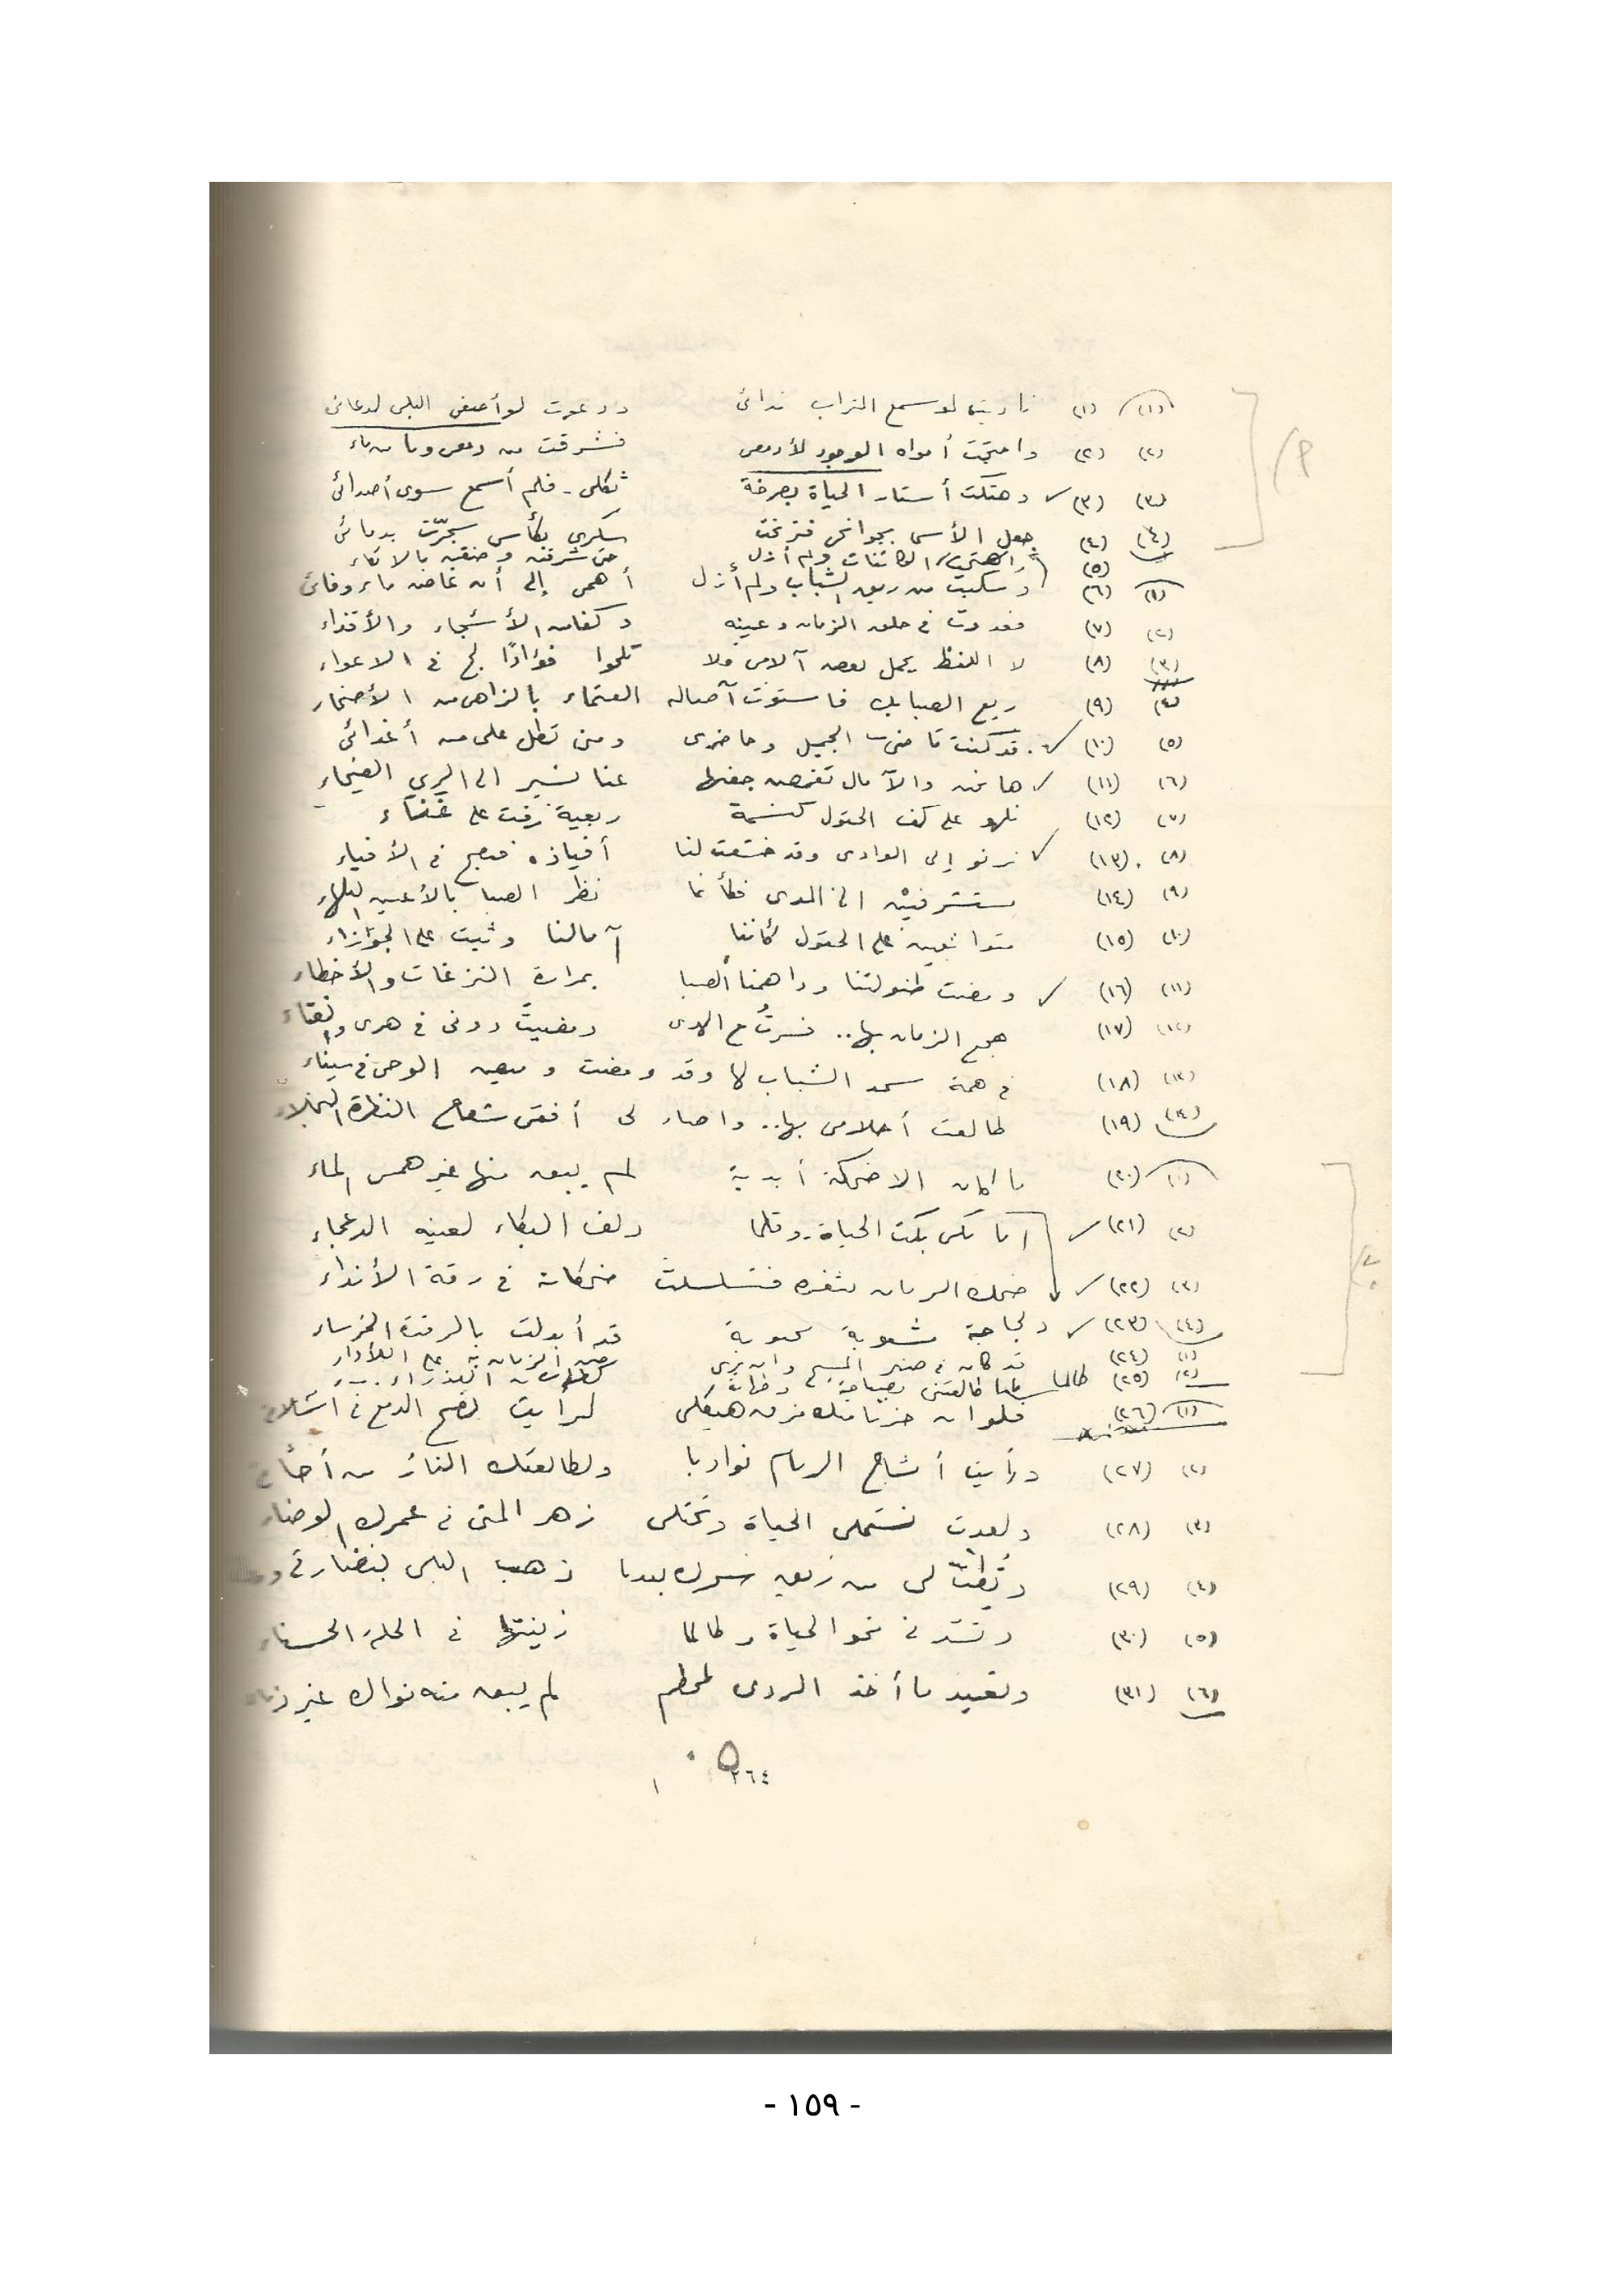 (١) (١) ناديت لو سمع التراب ندائى ودعوت لو أصغى البلى لدعائى
(٢) (٢) وامتحت أمواه الوجود لأدمعى فشرقت من دمعى وما من ماء
(٣) (٣) وهتكت أستار الحياة بصرخة ثكلى - فلم أسمع سوى أصدائى
(٤) (٤) جعل الأسى بجوانحى فترنحت سكرى بكأس سجرت بدمائى
(٥) الكائنات ولم أزل حتى شرقنه وضقنه بالارتاء
(١) (٦) وسكبت من ريق الشباب ولم أزل أهمى إلى أن غاض ماء وفائى
(٢) (٧) فغدوت فى حلق الزمان وعينه وكفاه الأشجاء والأقذاء
(٣) (٨) لا اللفظ يحمل بعض آلامى ولا تلحوا فؤادًا لج فى الاعواء
(٤) (٩) ريع الصبا بك فاستوت آصاله العتماء بالزاهى من الأضحار
(٥) (١٠) قد كنت ماضىّ الجميل وحاضرى ومنى تطل على من أغدائى
(٦) (١١) ها نحن والآمال تغمض جفنها عنا نسير الى الربى الفيحاء
(٧) (١٢) نلهو على كف الحقول كنسمة ربعية زفت على غنّاء
(٨) (١٣) نرنو إلى الوادى وقد خشعت لنا أفياؤه فنعج فى الأفياء
(٩) (١٤) مستشرفين الى المدى فكأنما نظر الصبا بالأعين البلهاء
(١٠) (١٥) متواثبين على الحقول كأننا آمالنا وثبت على الجوزاء
(١١) (١٦) ومضت طفولتنا وداهمنا الصبا بمرارة النزغات والأخطاء
(١٢) (١٧) هجع الزمان بها.. فسرتُ مع الهدى ومضيتَ دونى فى هدى ونقاء
(١٣) (١٨) فى همة سجد الشباب لها وقد ومضت وميض الوحى فى سيناء
(١٤) (١٩) طالعت أحلامى بها.. وأضاء لى أفقى شعاع النظرة النجلاء
(١) (٢٠) ما كان الا ضحكة أبدية لم يبق منها غير همس الماء
(٢) (٢١) اما بكى بكت الحياة - وقلما دلف البكاء لعينه الدعجاء
(٣) (٢٢) ضحك الزمان بثغره فتسلسلت ضحكاته فى رقة الأنداء
(٤) (٢٣) ولجاجة مشبوبة محبوبة قد أبدلت بالرقدة الخرساء
(١) (٢٤) قد كان فى صغر المسيح وان يرى
(٢) (٢٥) طالما طالعتنى
(١) (٢٦) فلو ان حزنا منك مزق هيكلى لرأيت نضح الدمع فى اشلائى
(٢) (٢٧) ورأيت أشباح الرمام نوادبا ولطالعتك النار من أحشائى
(٣) (٢٨) ولعدت تستملى الحياة وتجتلى زهر المنى فى عمرك الوضاء
(٤) (٢٩) لى من رفيق عمرك بعدما ذهب البلى بنضارتى
(٥) (٣٠) وتشدنى نحو الحياة وطالما زينتها فى الحلة الحسناء
(٦) (٣١) وتعيد ما أخذ الردى لمحطم لم يبق منه نواك غير ذماء
٢٦٤
- ١٥٩ -